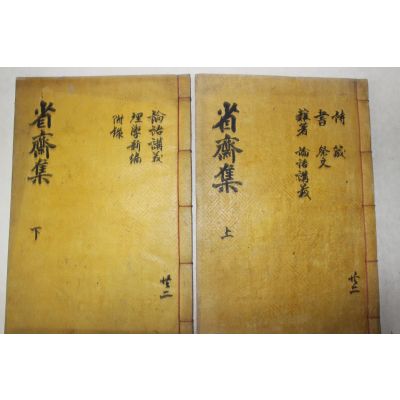 省齋集
上
詩 箴
書 祭文
雜著 論語講義
共二
省齋集
下
論語講義
理學新編
附錄
共二